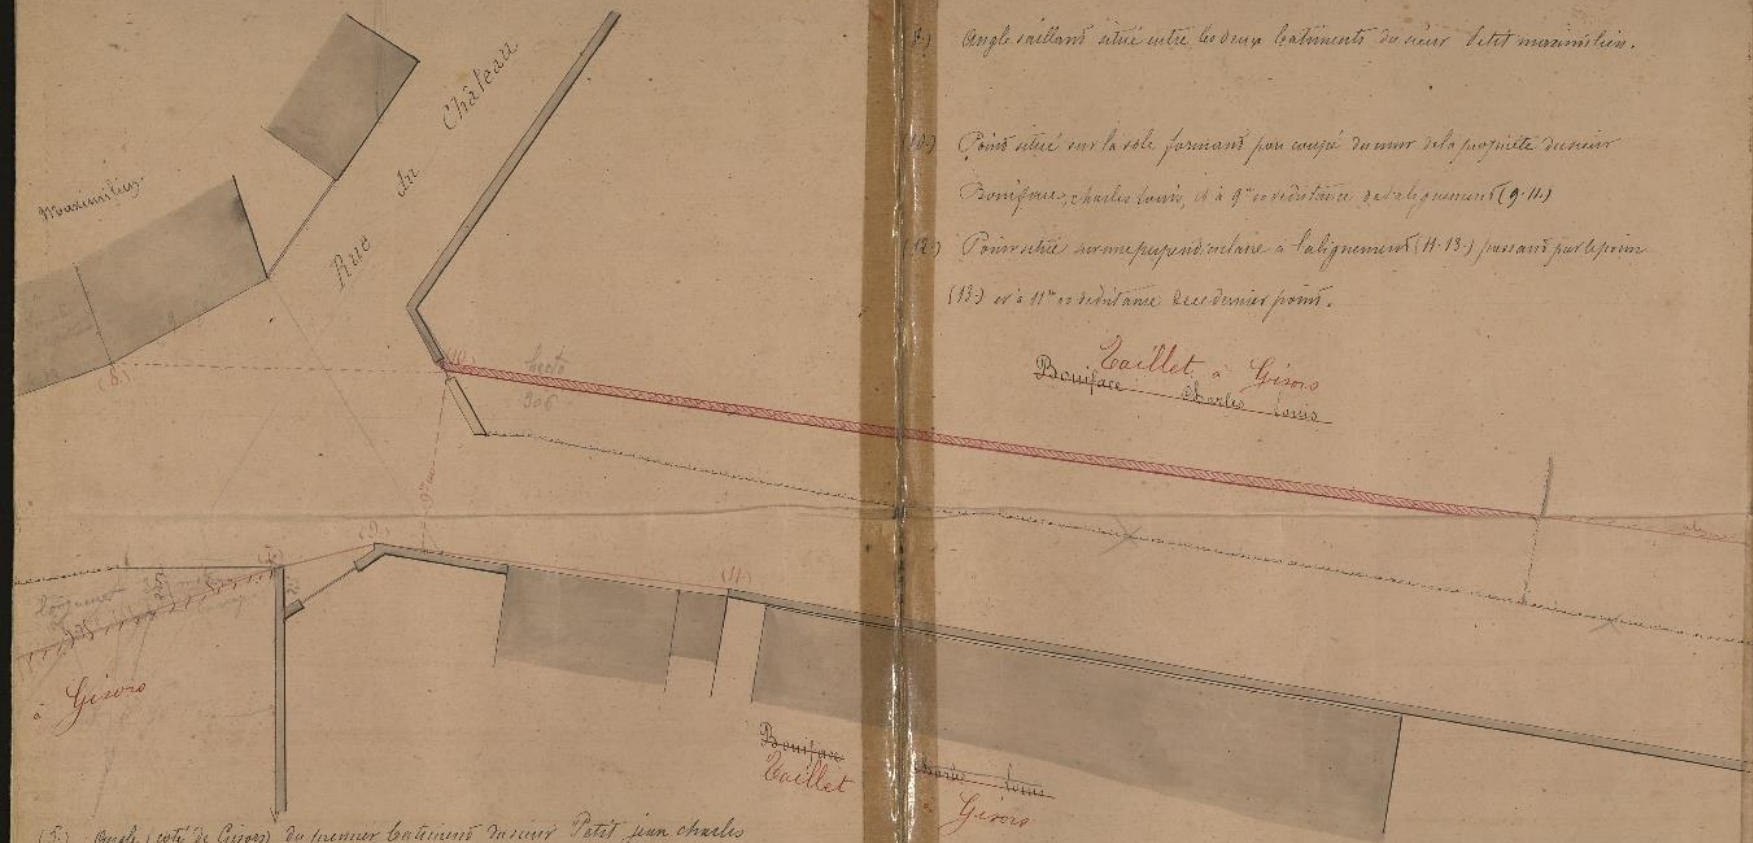 (8.) Angle saillant situé entre les deux bâtiments du sieur Petit maximilien.
(10.) Point situé sur la sole formant pan coupé du mur de la propriété du sieur
Boniface, charles Louis, et à 9m de distance de l'alignement (9.11.)
(12.) Point situé sur une perpendiculaire à l'alignement (11-13.) passant par le point
(13.) et à 11m de distance de ce dernier point.
Château
du
Rue
Maximilien
(8.)
(10.)
306
Taillet à Gisors
Boniface Charles Louis
9m
(9.)
(11.)
à Gisors
Boniface
Taillet
Charles Louis
Gisors
(5.) Angle (coté de Gisors) du premier bâtiment du sieur Petit jean charles